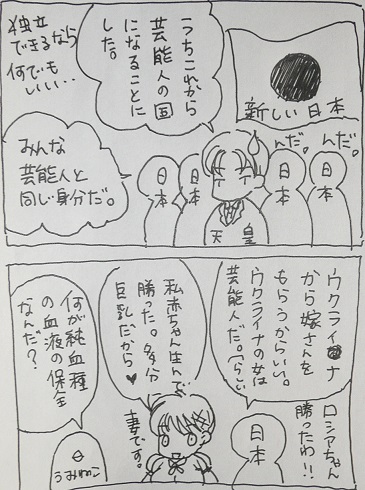 新しい日本
うちこれから
芸能人の国
になることに
した。
独立
できるなら
何でも
いい…
んだ。
んだ。
みんな
芸能人と
同じ身分だ。
日本
日本
天皇
日本
日本
ウクライナ
から嫁さんを
もらうからいい。
ウクライナの女は
芸能人だ。(らしい
ロシアちゃん
勝ったわ!!
日本
私赤ちゃん生んで
勝った。多分
巨乳だから♥
妻です。
何が純血種
の血液の保全
なんだ?
うみねこ